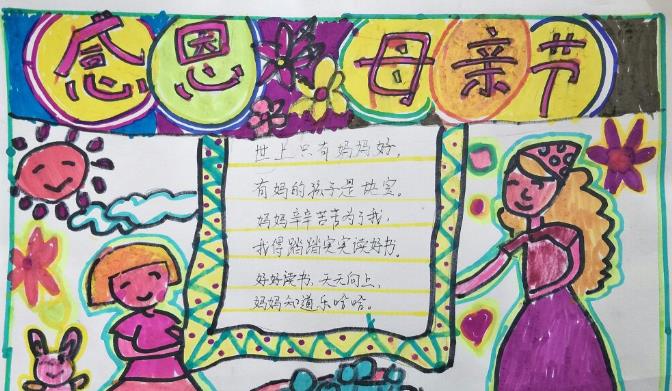 感恩母亲节
世上只有妈妈好，
有妈的孩子是块宝。
妈妈辛辛苦苦为了我，
我得踏踏实实读好书。
好好读书，天天向上，
妈妈知道乐哈哈。